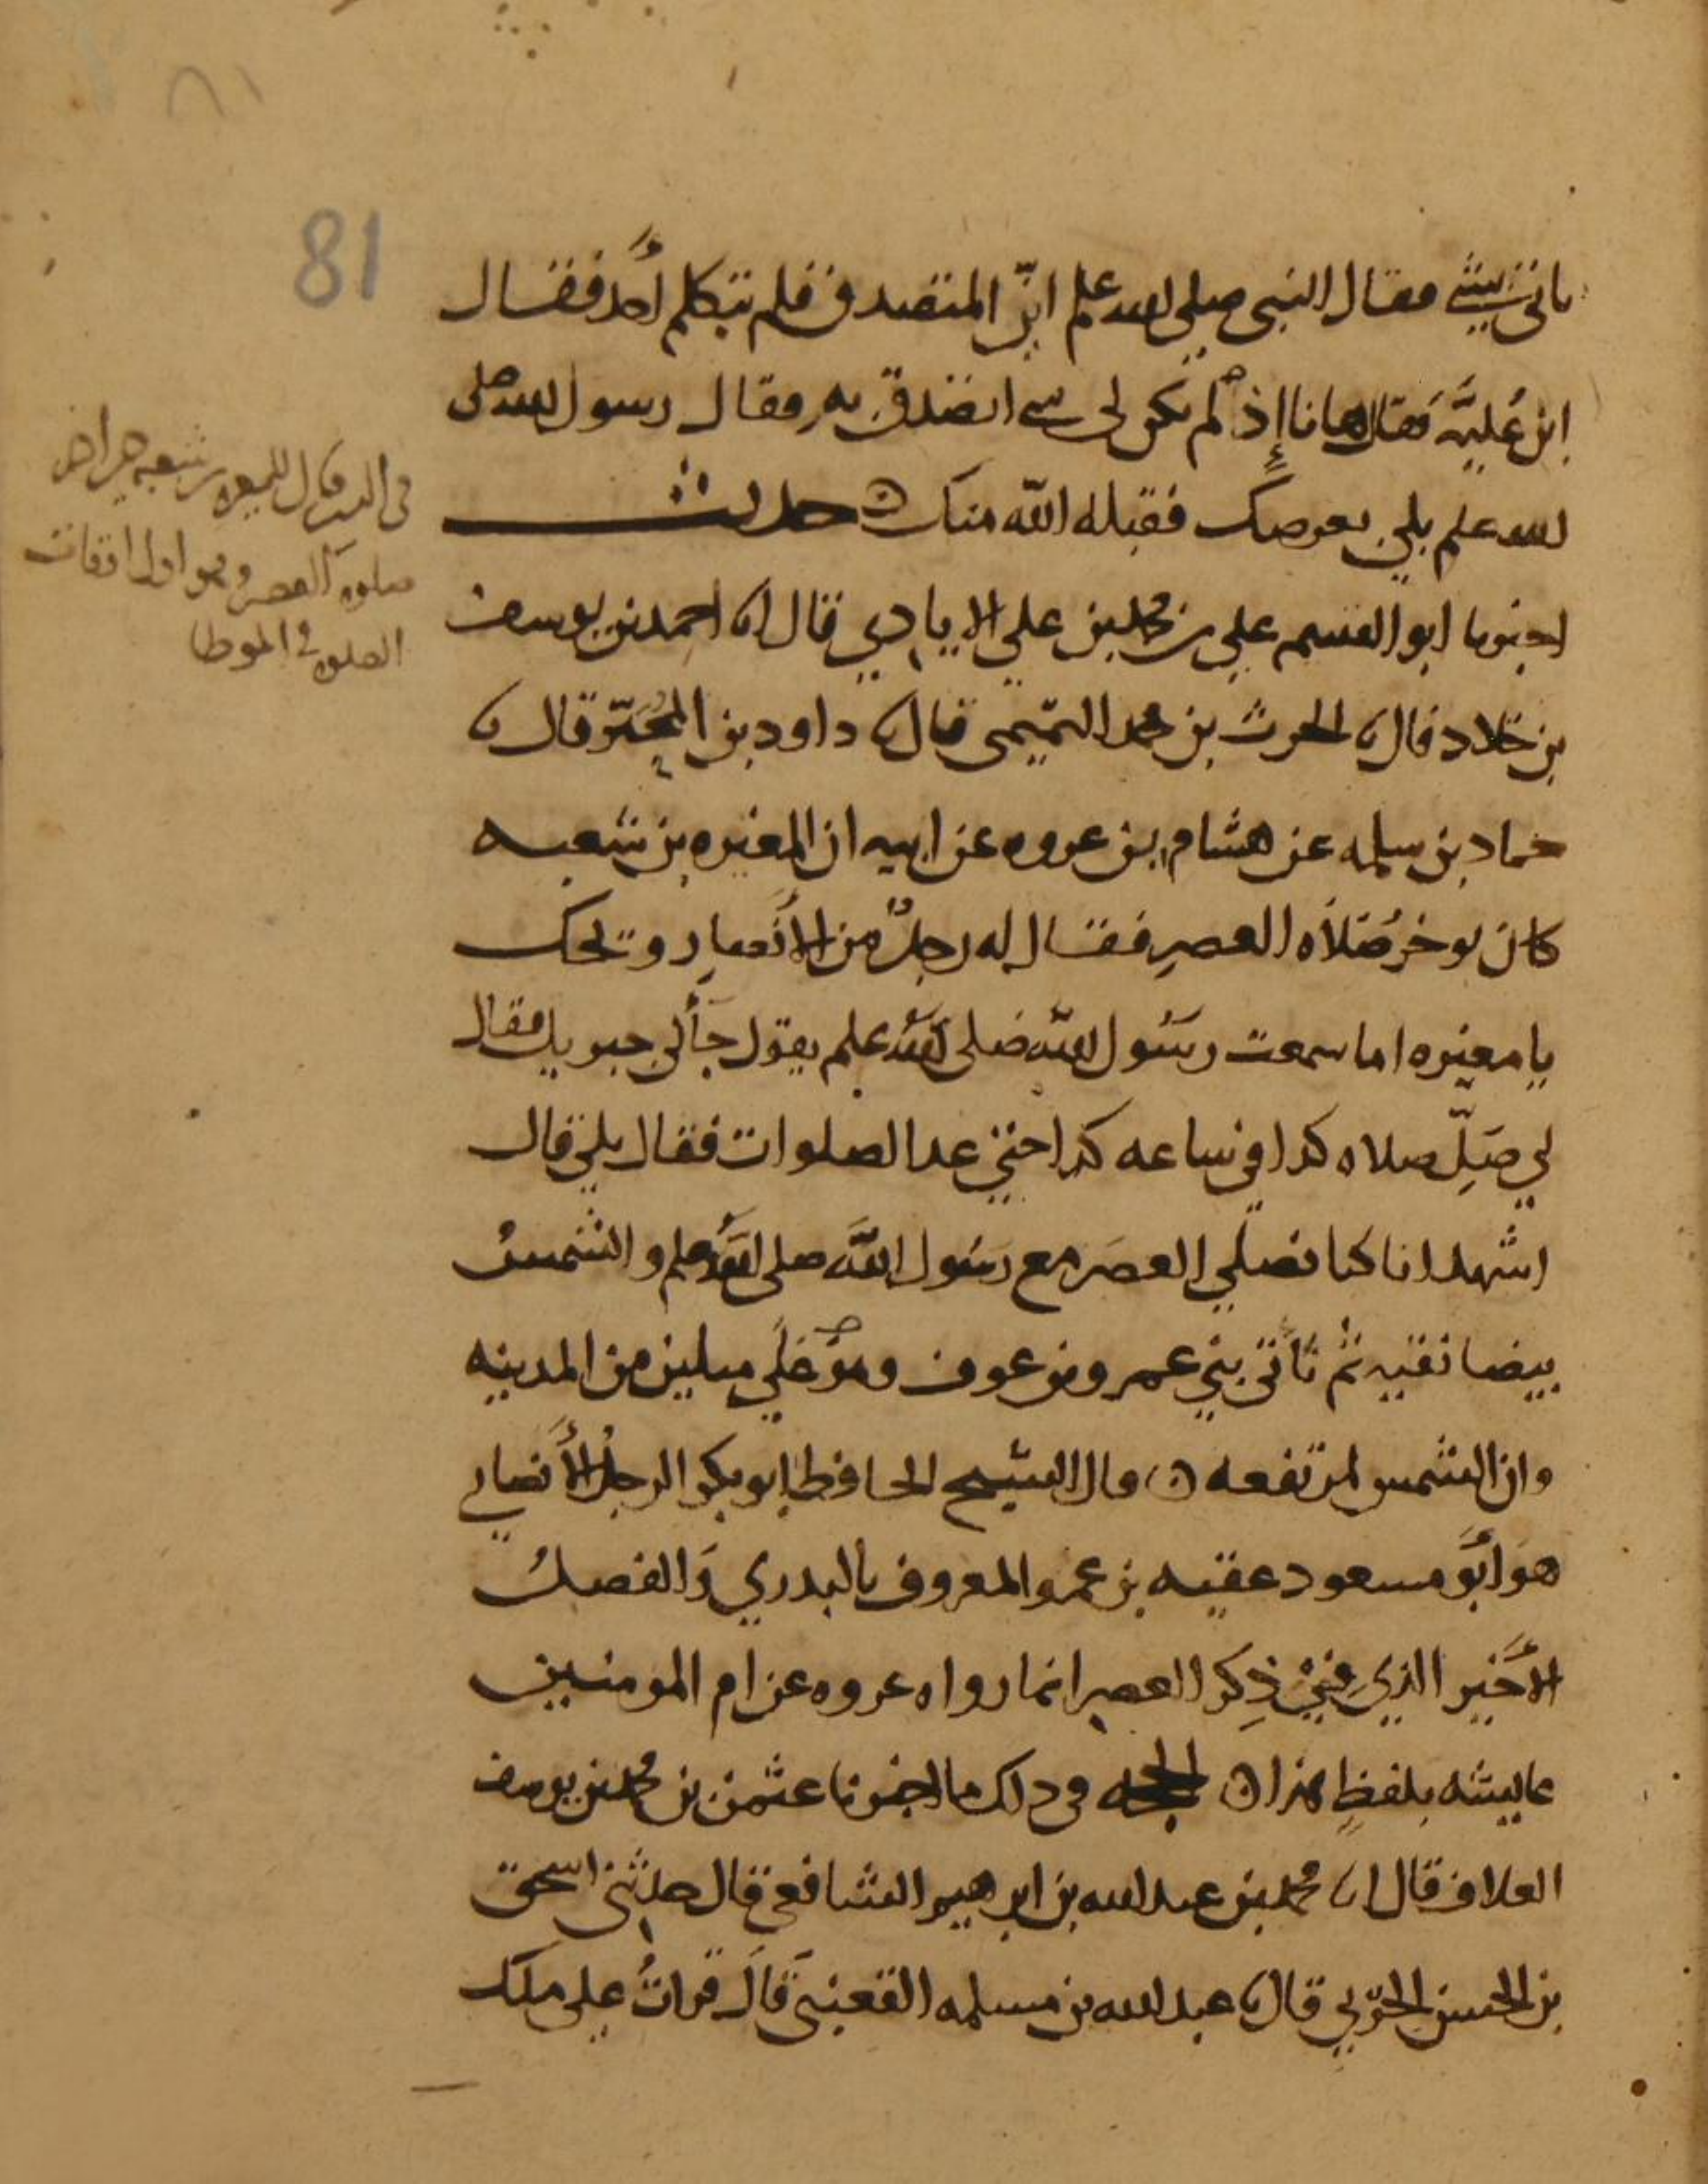 ٨١
81
ياتى بشي فقال النبى صلى الله علم اين المتصدق فلم يتكلم أحد فقال
ابن عُليَّه فقال هاانا إذ لم يكن لى شى اتصدق به فقال رسول الله صلى
الله علم بلى بعرضك فقبله الله منك ه حديث
اخبرنا ابو القسم على بن محمد بن علي الايادي قال انا احمد بن يوسف
بن خلاد قال نا الحرث بن محمد التميمى قال نا داود بن المحبّر قال نا
حماد بن سلمه عن هشام بن عروه عن ابيه ان المغيره بن شعبه
كان يوخرُ صَلاَه العصرِ فقال له رجلٌ من الأنصارِ ويحك
يا مغيره اما سمعت رسُول الله صلى الله علم يقول جأنى جبريل فقال
لي صَلِّ صلاه كدا في ساعه كدا حتى عد الصلوات فقال بلى قال
اشهد انا كنا نصلي العصَر مع رسُول اللَّه صلى اللَّه علم والشمسُ
بيضا نقيه ثم نأتى بني عمرو بن عوف وهوَ على ميلين من المدينه
وان الشمس لمرتفعه ه قال الشيخ الحافظ ابو بكر الرجلُ الأنصاري
هوَ ابوَ مسعود عقبه بن عمرو المعروف بالبدري وَالفصلُ
الأخير الذي فى ذِكر العصر انما رواه عروه عن ام المومنين
عايشه بلفظٍ هذا ه الحجه فى دلك ما اخبرنا عثمن بن محمد بن يوسف
العلاف قال انا محمد بن عبد الله بن ابرهيم الشافعي قال حدثنى اسحق
بن الحسن الحَرّبي قال نا عبد الله بن مسلمه القعنبى قالَ قراتُ على ملك
فى قال للمغيره بن شعبه
صلوه العصر وهو اول اوقات
الصلوه فى الموطا